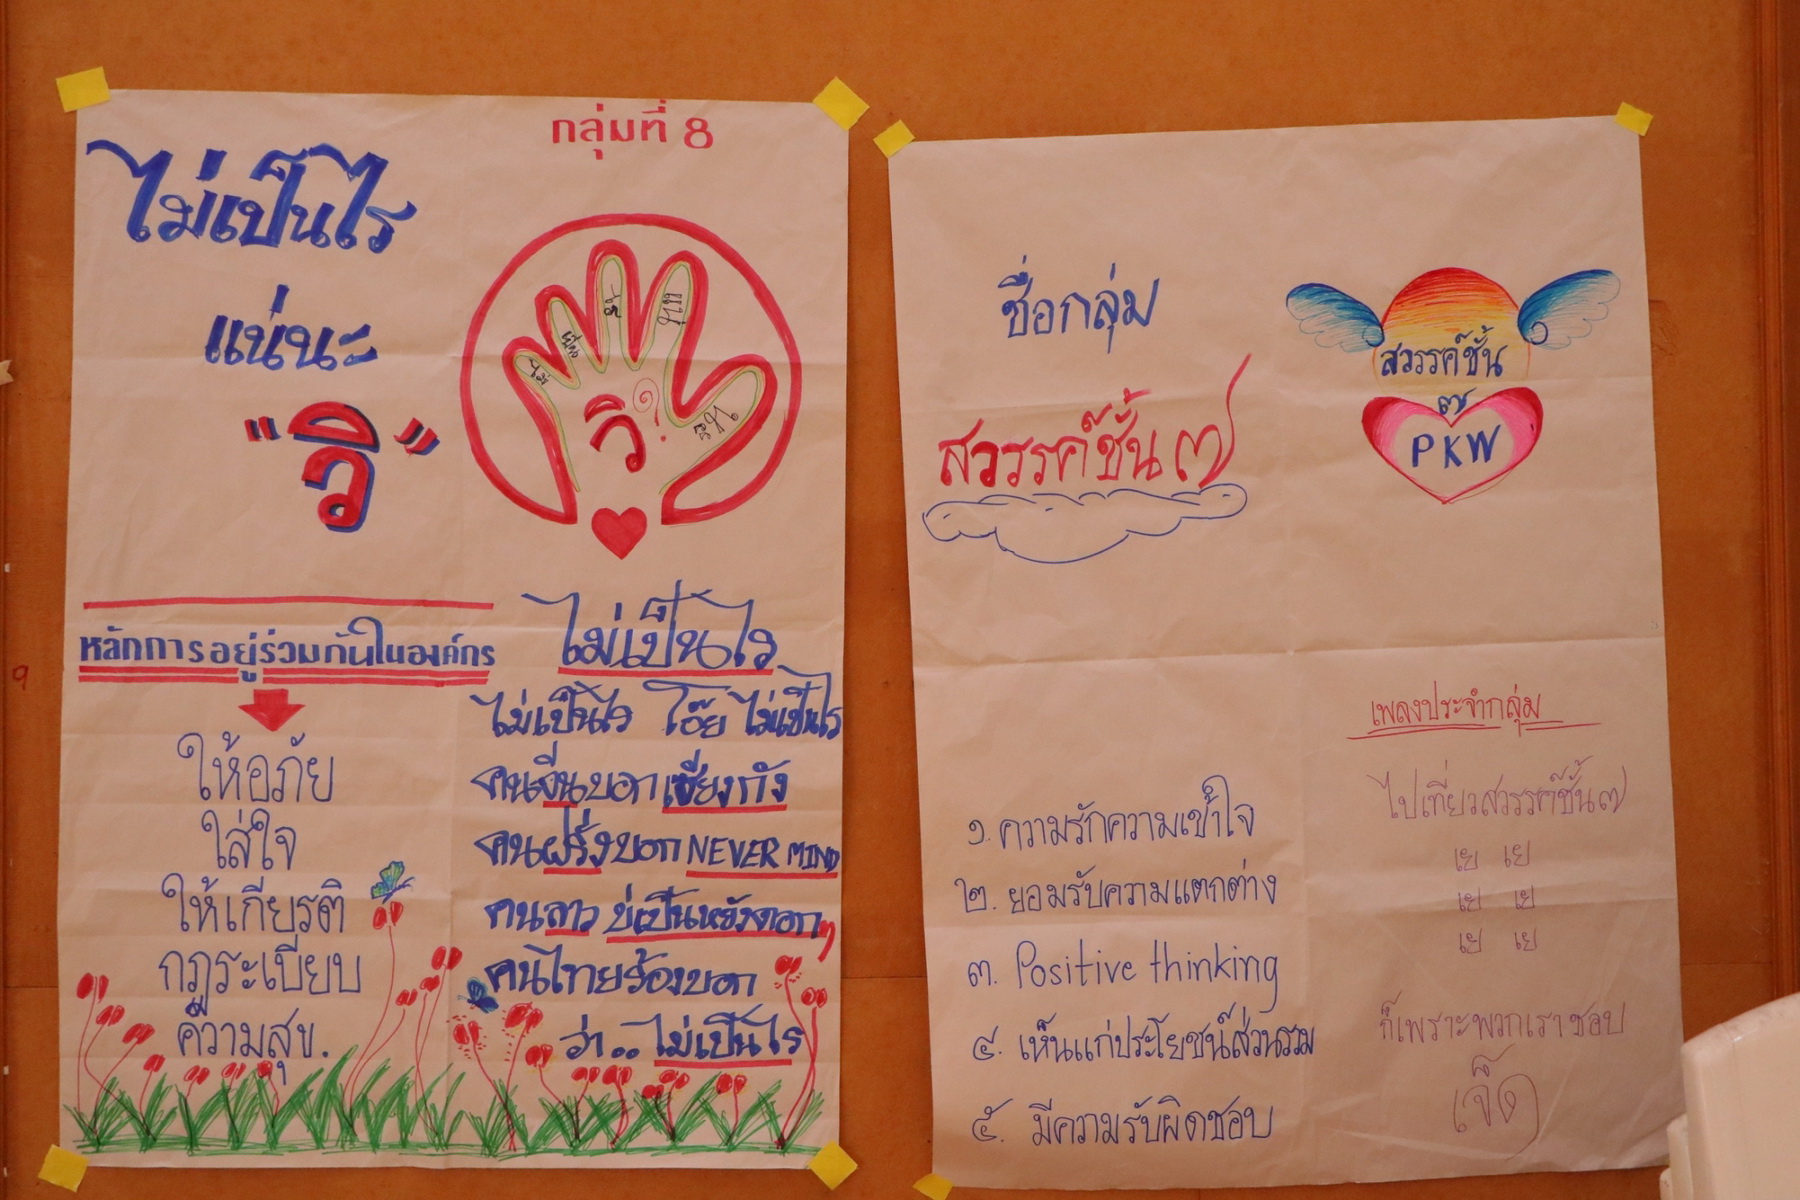 กลุ่มที่ 8
ไม่เป็นไร
แน่นะ
"วิ"
ไม่
เป็น
ไร
วิ
หลักการอยู่ร่วมกันในองค์กร
ให้อภัย
ใส่ใจ
ให้เกียรติ
กฎระเบียบ
ความสุข.
ไม่เป็นไร
ไม่เป็นไร โอ๊ย ไม่เป็นไร
คนจีนบอก เซียงกัง
คนฝรั่งบอก NEVER MIND
คนลาว บ่เป็นหยังดอก
คนไทยร้องบอก
ว่า.. ไม่เป็นไร
ชื่อกลุ่ม
สวรรค์ชั้น ๗
สวรรค์ชั้น
๗
PKW
๑. ความรักความเข้าใจ
๒. ยอมรับความแตกต่าง
๓. Positive thinking
๔. เห็นแก่ประโยชน์ส่วนรวม
๕. มีความรับผิดชอบ
เพลงประจำกลุ่ม
ไปเที่ยวสวรรค์ชั้น ๗
เย เย
เย เย
เย เย
ก็เพราะพวกเราชอบ
เจ็ด